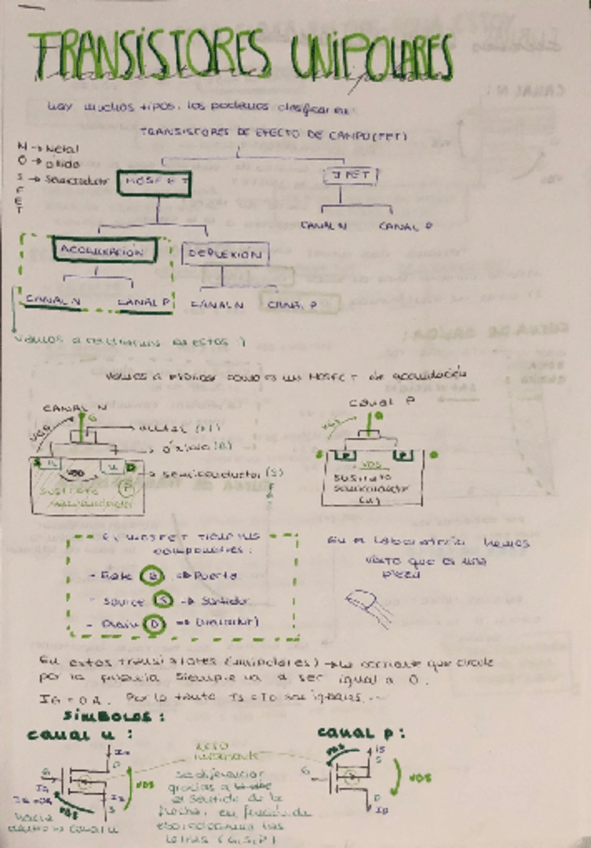 TRANSISTORES UNIPOLARES
Hay muchos tipos, los podemos clasificar en:
TRANSISTORES DE EFECTO DE CAMPO (FET)
M → Metal
O → óxido
S → Semiconductor
F
E
T
MOSFET
JFET
CANAL N CANAL P
ACUMULACIÓN
DEPLEXION
CANAL N CANAL P CANAL N CANAL P
Vamos a centrarnos en estos
Vamos a como es un MOSFET de acumulación
CANAL N
G
VGS
(M)
óxido (O)
semiconductor (S)
F
E
T
S N VDD N D
SUSTRATO P
semiconductor
canal P
G
VGS
P P
VDS
SUSTRATO
semiconductor
(N)
El MOSFET tiene tres
componentes:
- Gate G → Puerta
- Source S → Surtidor
- Drain D → (Drenador)
En el laboratorio hemos
visto que es una
pieza
En estos transistores (unipolares) → la corriente que circula
por la puerta siempre va a ser igual a 0.
IG = 0A. Por lo tanto IS e ID son iguales...
SÍMBOLOS:
canal n:
canal p:
ID
D
G
IG
IG = 0A
VDS
VGS
IS
S
hacia
dentro canal n
Se diferencian
gracias a
el sentido de la
flecha, en función de
las
letras (G, S, D)
VGS
IS
S
G
VDS
D
ID